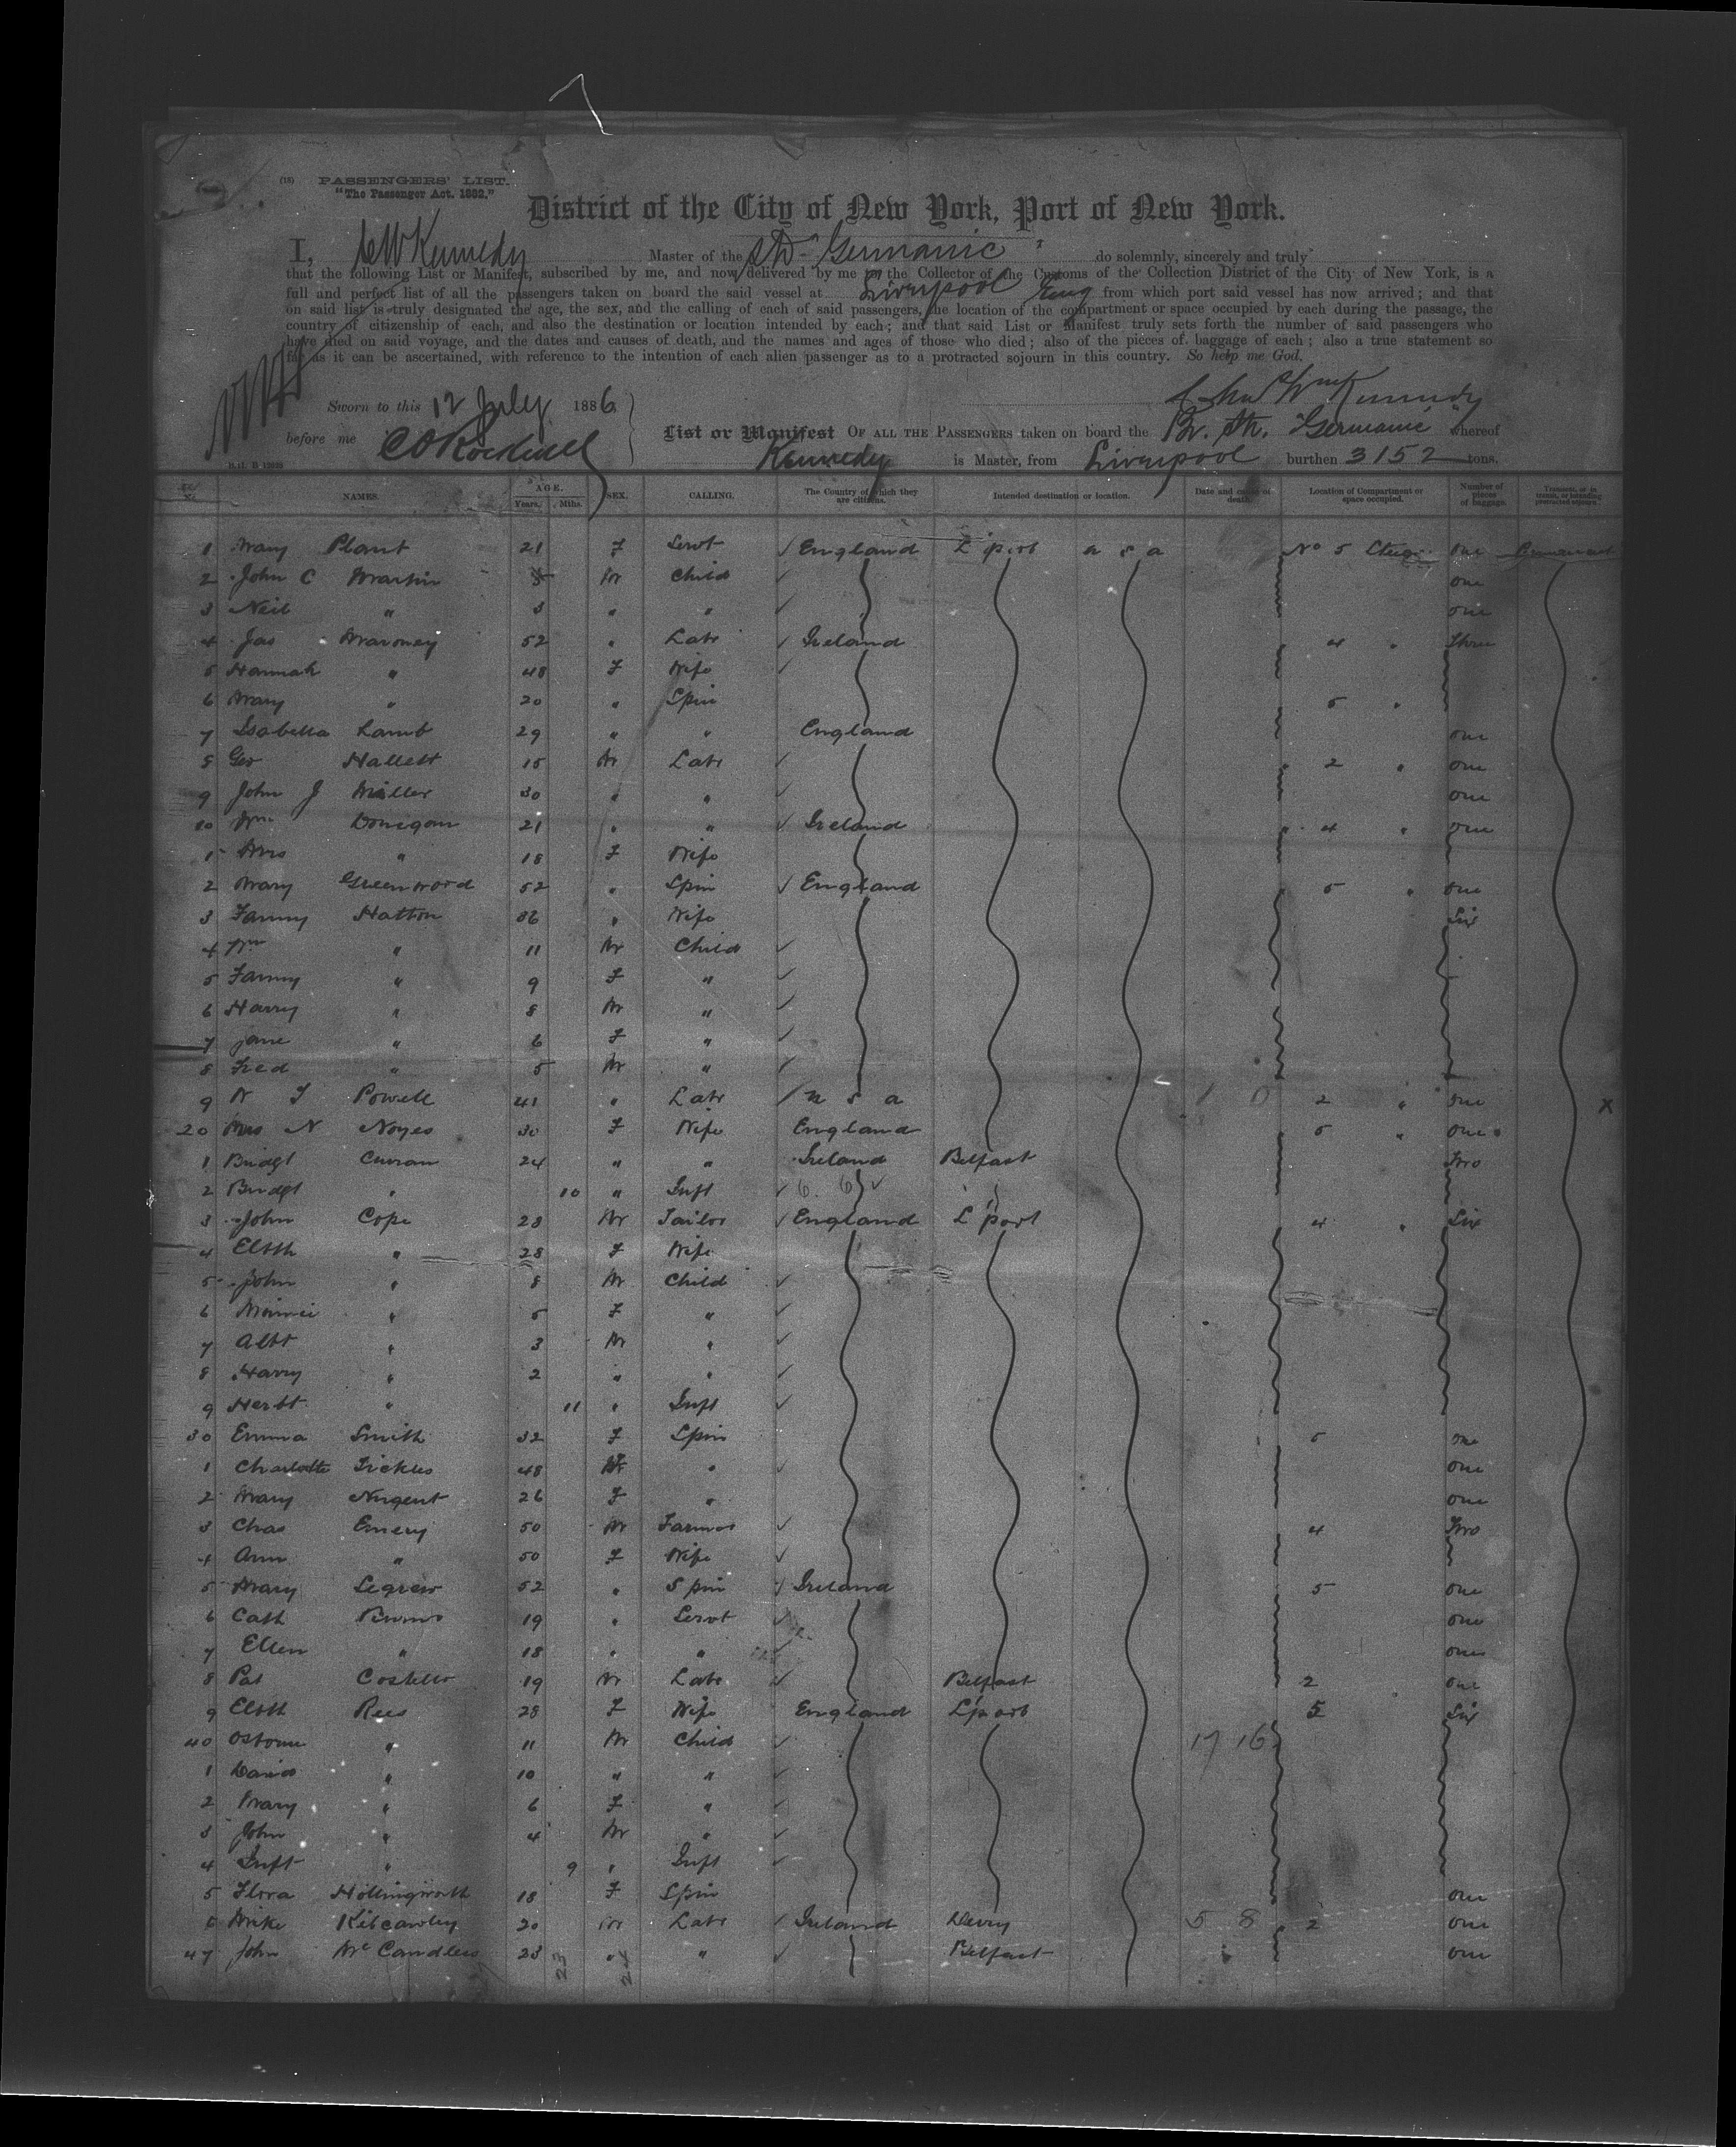 (15) PASSENGERS' LIST.
"The Passenger Act. 1882."
District of the City of New York, Port of New York.
I, C W Kennedy Master of the SS Germanic do solemnly, sincerely and truly
that the following List or Manifest, subscribed by me, and now delivered by me to the Collector of the Customs of the Collection District of the City of New York, is a
full and perfect list of all the passengers taken on board the said vessel at Liverpool Eng from which port said vessel has now arrived; and that
on said list is truly designated the age, the sex, and the calling of each of said passengers, the location of the compartment or space occupied by each during the passage, the
country of citizenship of each, and also the destination or location intended by each; and that said List or Manifest truly sets forth the number of said passengers who
have died on said voyage, and the dates and causes of death, and the names and ages of those who died; also of the pieces of baggage of each; also a true statement so
far as it can be ascertained, with reference to the intention of each alien passenger as to a protracted sojourn in this country. So help me God.
Kennedy
Sworn to this 12 July 1886
before me C O Rockwell
List or Manifest OF ALL THE PASSENGERS taken on board the Br. Str. Germanic whereof
Kennedy is Master, from Liverpool burthen 3152 tons.
NAMES. AGE. Years. Mths. SEX. CALLING. The Country of which they are citizens. Intended destination or location. Date and cause of death. Location of Compartment or space occupied. Number of pieces of baggage. Transient, in transit, or intending protracted sojourn.
1 Mary Plant 21 F Servt England L'pool u s a No 5 one
2 John C Martin M Child one
3 Neil " 3 " " one
4 Jas Maroney 52 " Labr Ireland 4 " Three
5 Hannah " 48 F Wife
6 Mary " 20 " Spin 5 "
7 Isabella Lamb 29 " " England one
8 Geo Hallett 15 M Labr 2 " one
9 John J Miller 30 " " one
10 Wm Donegan 21 " " Ireland 4 " one
1 Mrs " 18 F Wife
2 Mary Greenwood 52 " Spin England 5 " one
3 Fanny Hatton 36 " Wife Six
4 Wm " 11 M Child
5 Fanny " 9 F "
6 Harry " 8 M "
7 Jane " 6 F "
8 Fred " 5 M "
9 W T Powell 41 " Labr u s a 2 " one x
20 Mrs N Noyes 30 F Wife England 5 " one
1 Bridgt Curran 24 " " Ireland Belfast Two
2 Bridgt " 10 " Inft
3 John Cope 28 M Tailor England L'pool 4 " Six
4 Elsth " 28 F Wife
5 John " 8 M Child
6 Minnie " 5 F "
7 Albt " 3 M "
8 Harry " 2 " "
9 Herbt " 11 " Inft
30 Emma Smith 32 F Spin 5 one
1 Charlotte Sickles 48 F " one
2 Mary Nugent 26 F " one
3 Chas Emery 50 M Farmer 4 Two
4 Ann " 50 F Wife
5 Mary Legrew 52 " Spin Ireland 5 one
6 Cath 19 " Servt one
7 Ellen " 18 " " one
8 Pat Costello 19 M Labr Belfast 2 one
9 Elsth Rees 28 F Wife England L'pool 5 Six
40 Osborne " 11 M Child 17 16
1 David " 10 " "
2 Mary " 6 F "
3 John " 4 M "
4 Inft " 9 " Inft
5 Flora Hollingworth 18 F Spin one
6 Mike Kilcawley 20 M Labr Ireland Derry 5 8 2 one
47 John McCandless 23 " " Belfast one
23 24